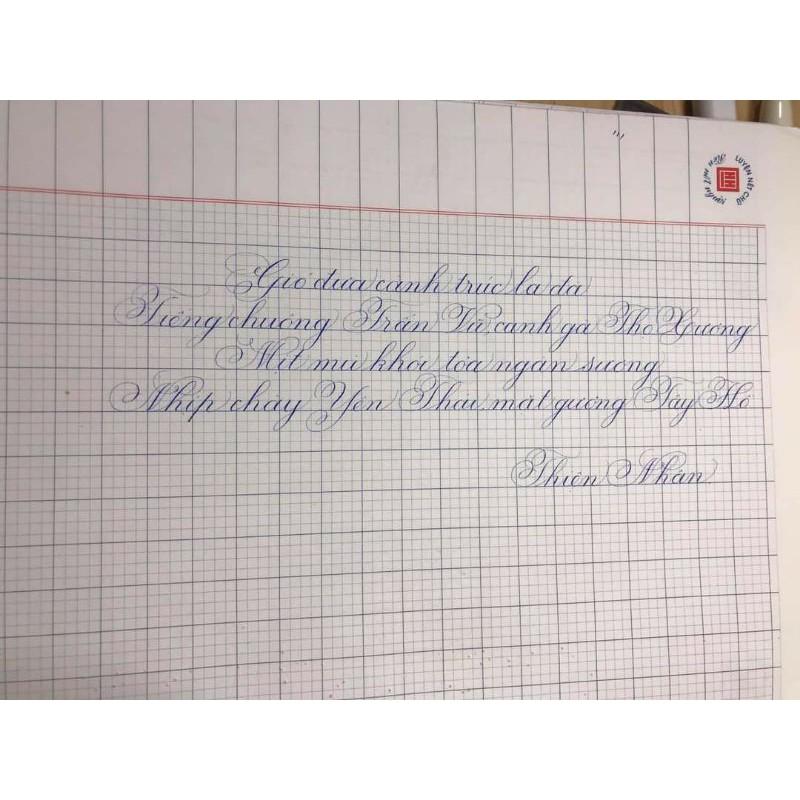 LUYỆN NÉT CHỮ
Gió đưa cành trúc la đà
Tiếng chuông Trấn Vũ, canh gà Thọ Xương
Mịt mù khói tỏa ngàn sương
Nhịp chày Yên Thái, mặt gương Tây Hồ
Thiện Nhân